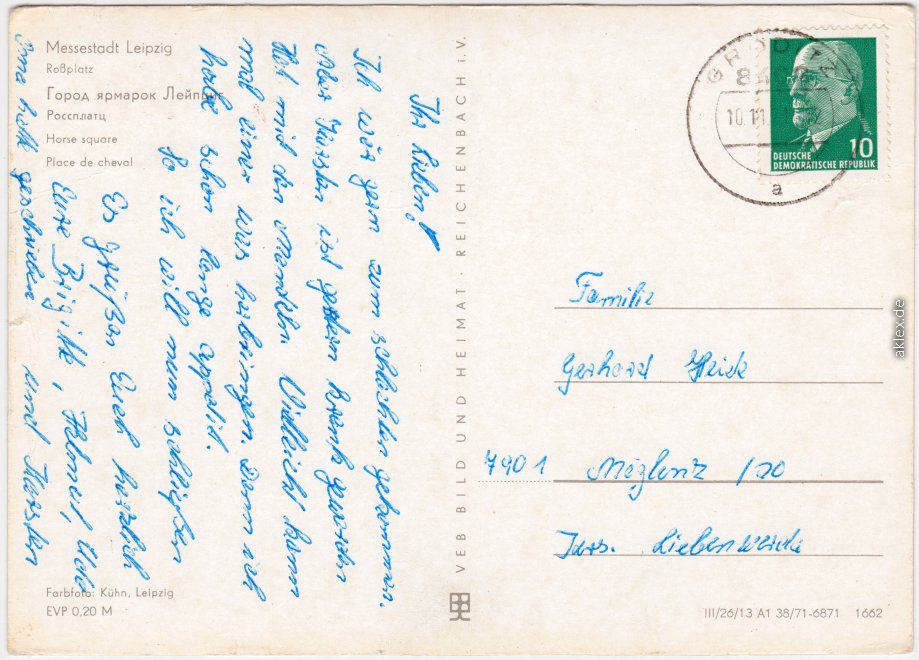 Messestadt Leipzig
Roßplatz
Город ярмарок Лейпциг
Россплатц
Horse square
Place de cheval
Ihr Lieben!
Ich wär gern zum schlachten gekommen.
Aber Karsten ist gestern krank geworden
Hat mit den Mandeln Vielleicht kann
mal einer was herbringen. Denn ich
habe schon lange Appetit.
So ich will nun schließen
Es grüßen Euch herzlich
Eure Brigitte, Helmut, Udo
und Karsten
Oma hat geschrieben
Farbfoto: Kühn, Leipzig
EVP 0,20 M
VEB BILD UND HEIMAT · REICHENBACH i. V.
GROITZ
10.11.
a
10
DEUTSCHE
DEMOKRATISCHE REPUBLIK
Familie
Gerhard Heide
7901 /20
Krs. Liebenwerda
III/26/13 A1 38/71-6871 1662
aklex.de